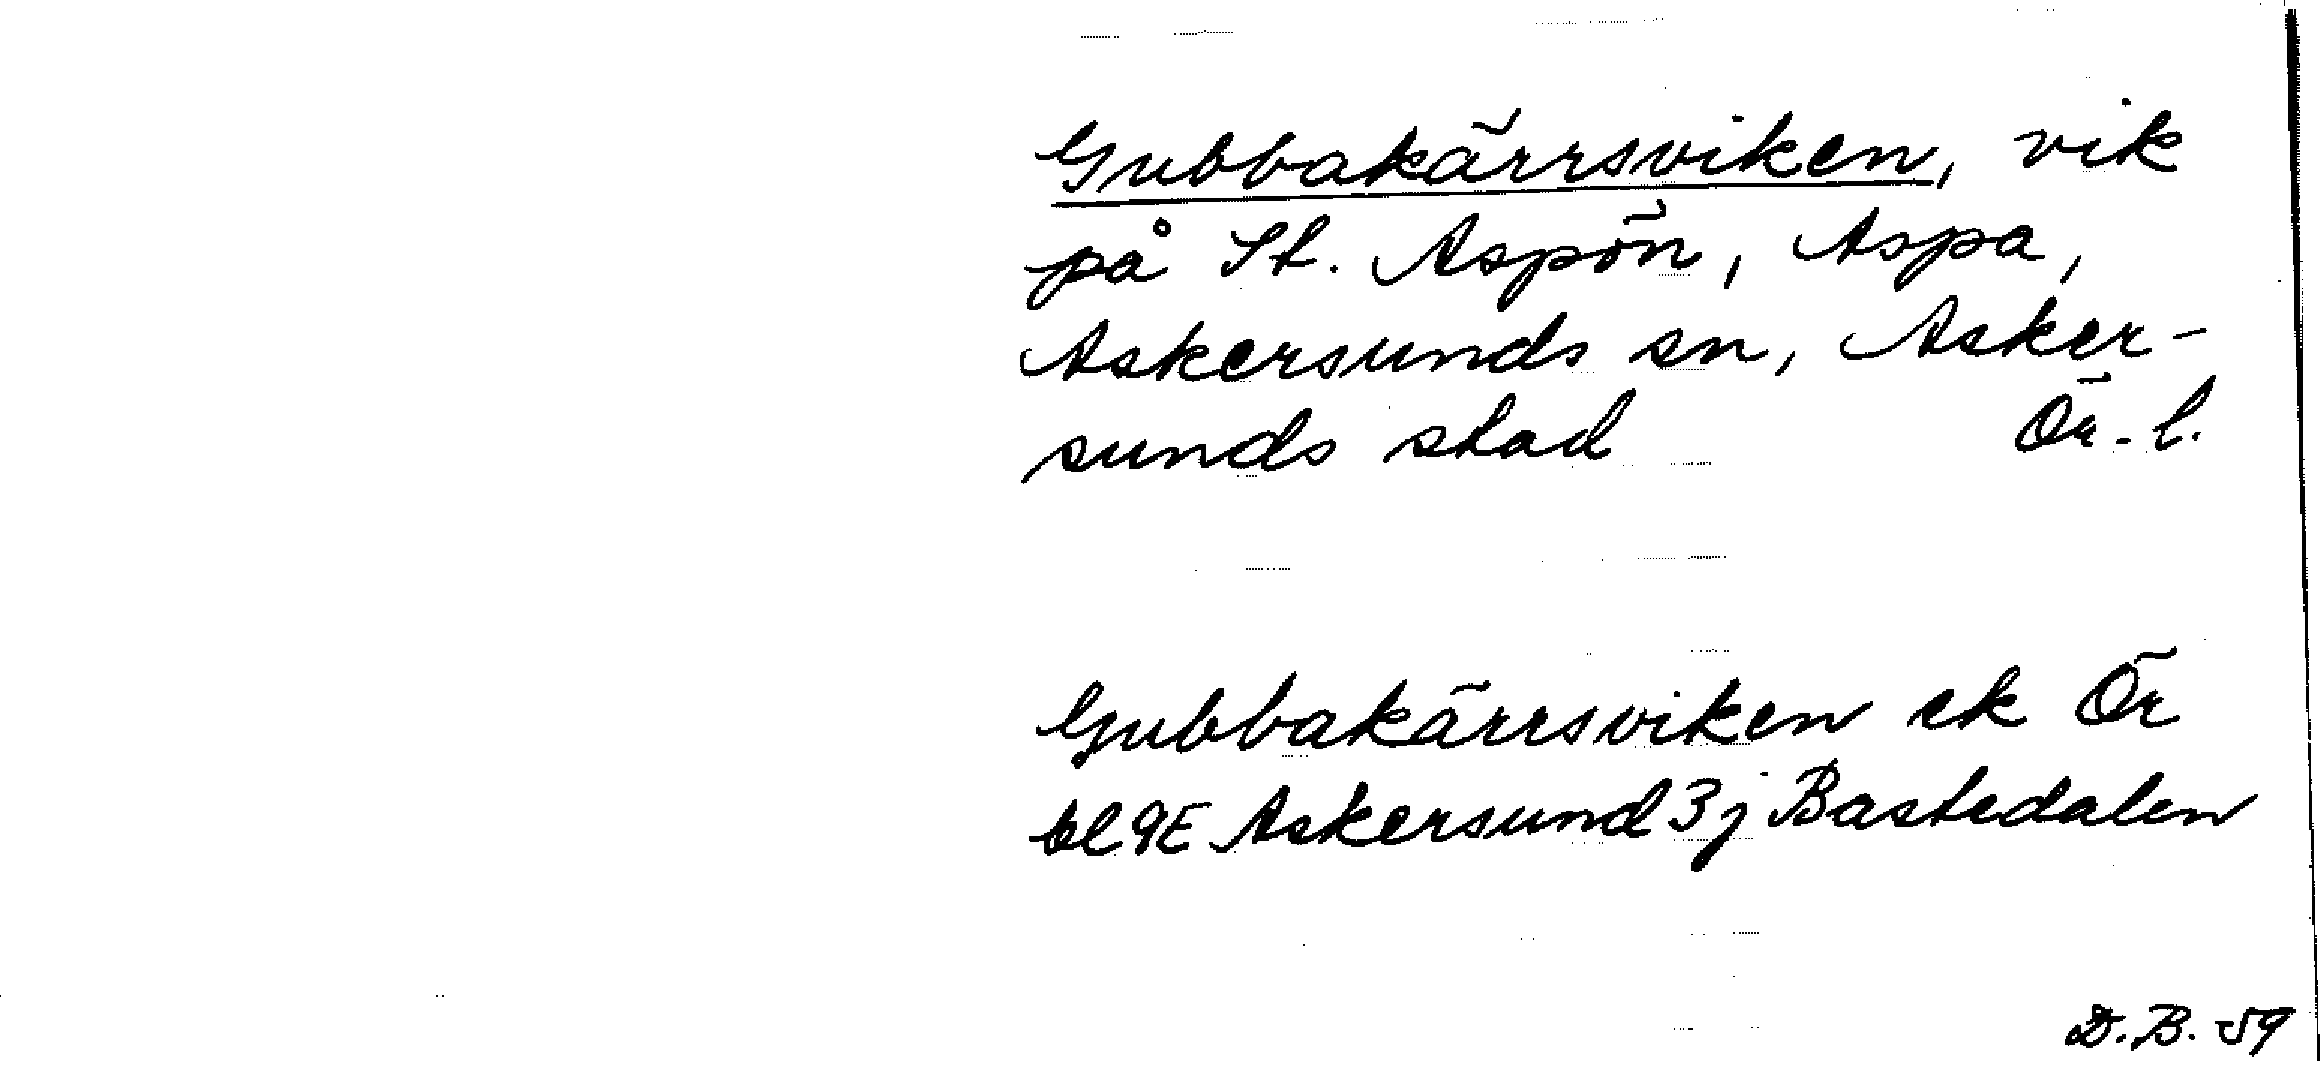 Gubbakärrsviken, vik
på St. Aspön, Aspa,
Askersunds sn, Asker-
sunds stad Ör. l.
Gubbakärrsviken ek Ör
bl 9E Askersund 3j Bastedalen
D.B. 59